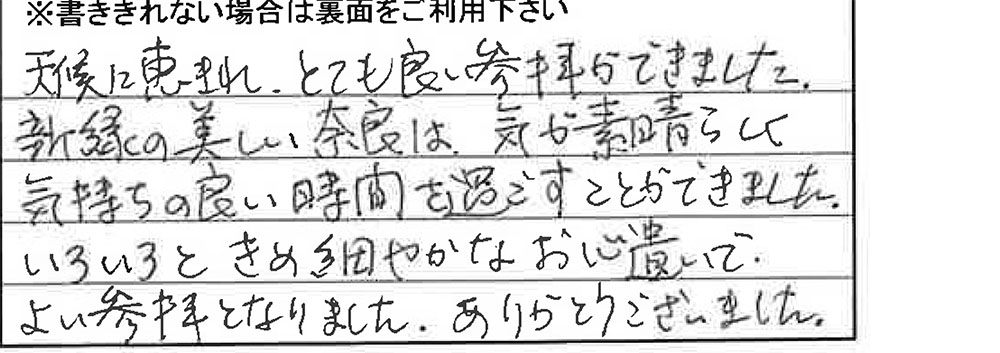 ※書ききれない場合は裏面をご利用下さい
天候に恵まれ、とても良い参拝ができました。
新緑の美しい奈良は、気が素晴らしく
気持ちの良い時間を過ごすことができました。
いろいろときめ細やかなお心遣いで、
よい参拝となりました。ありがとうございました。